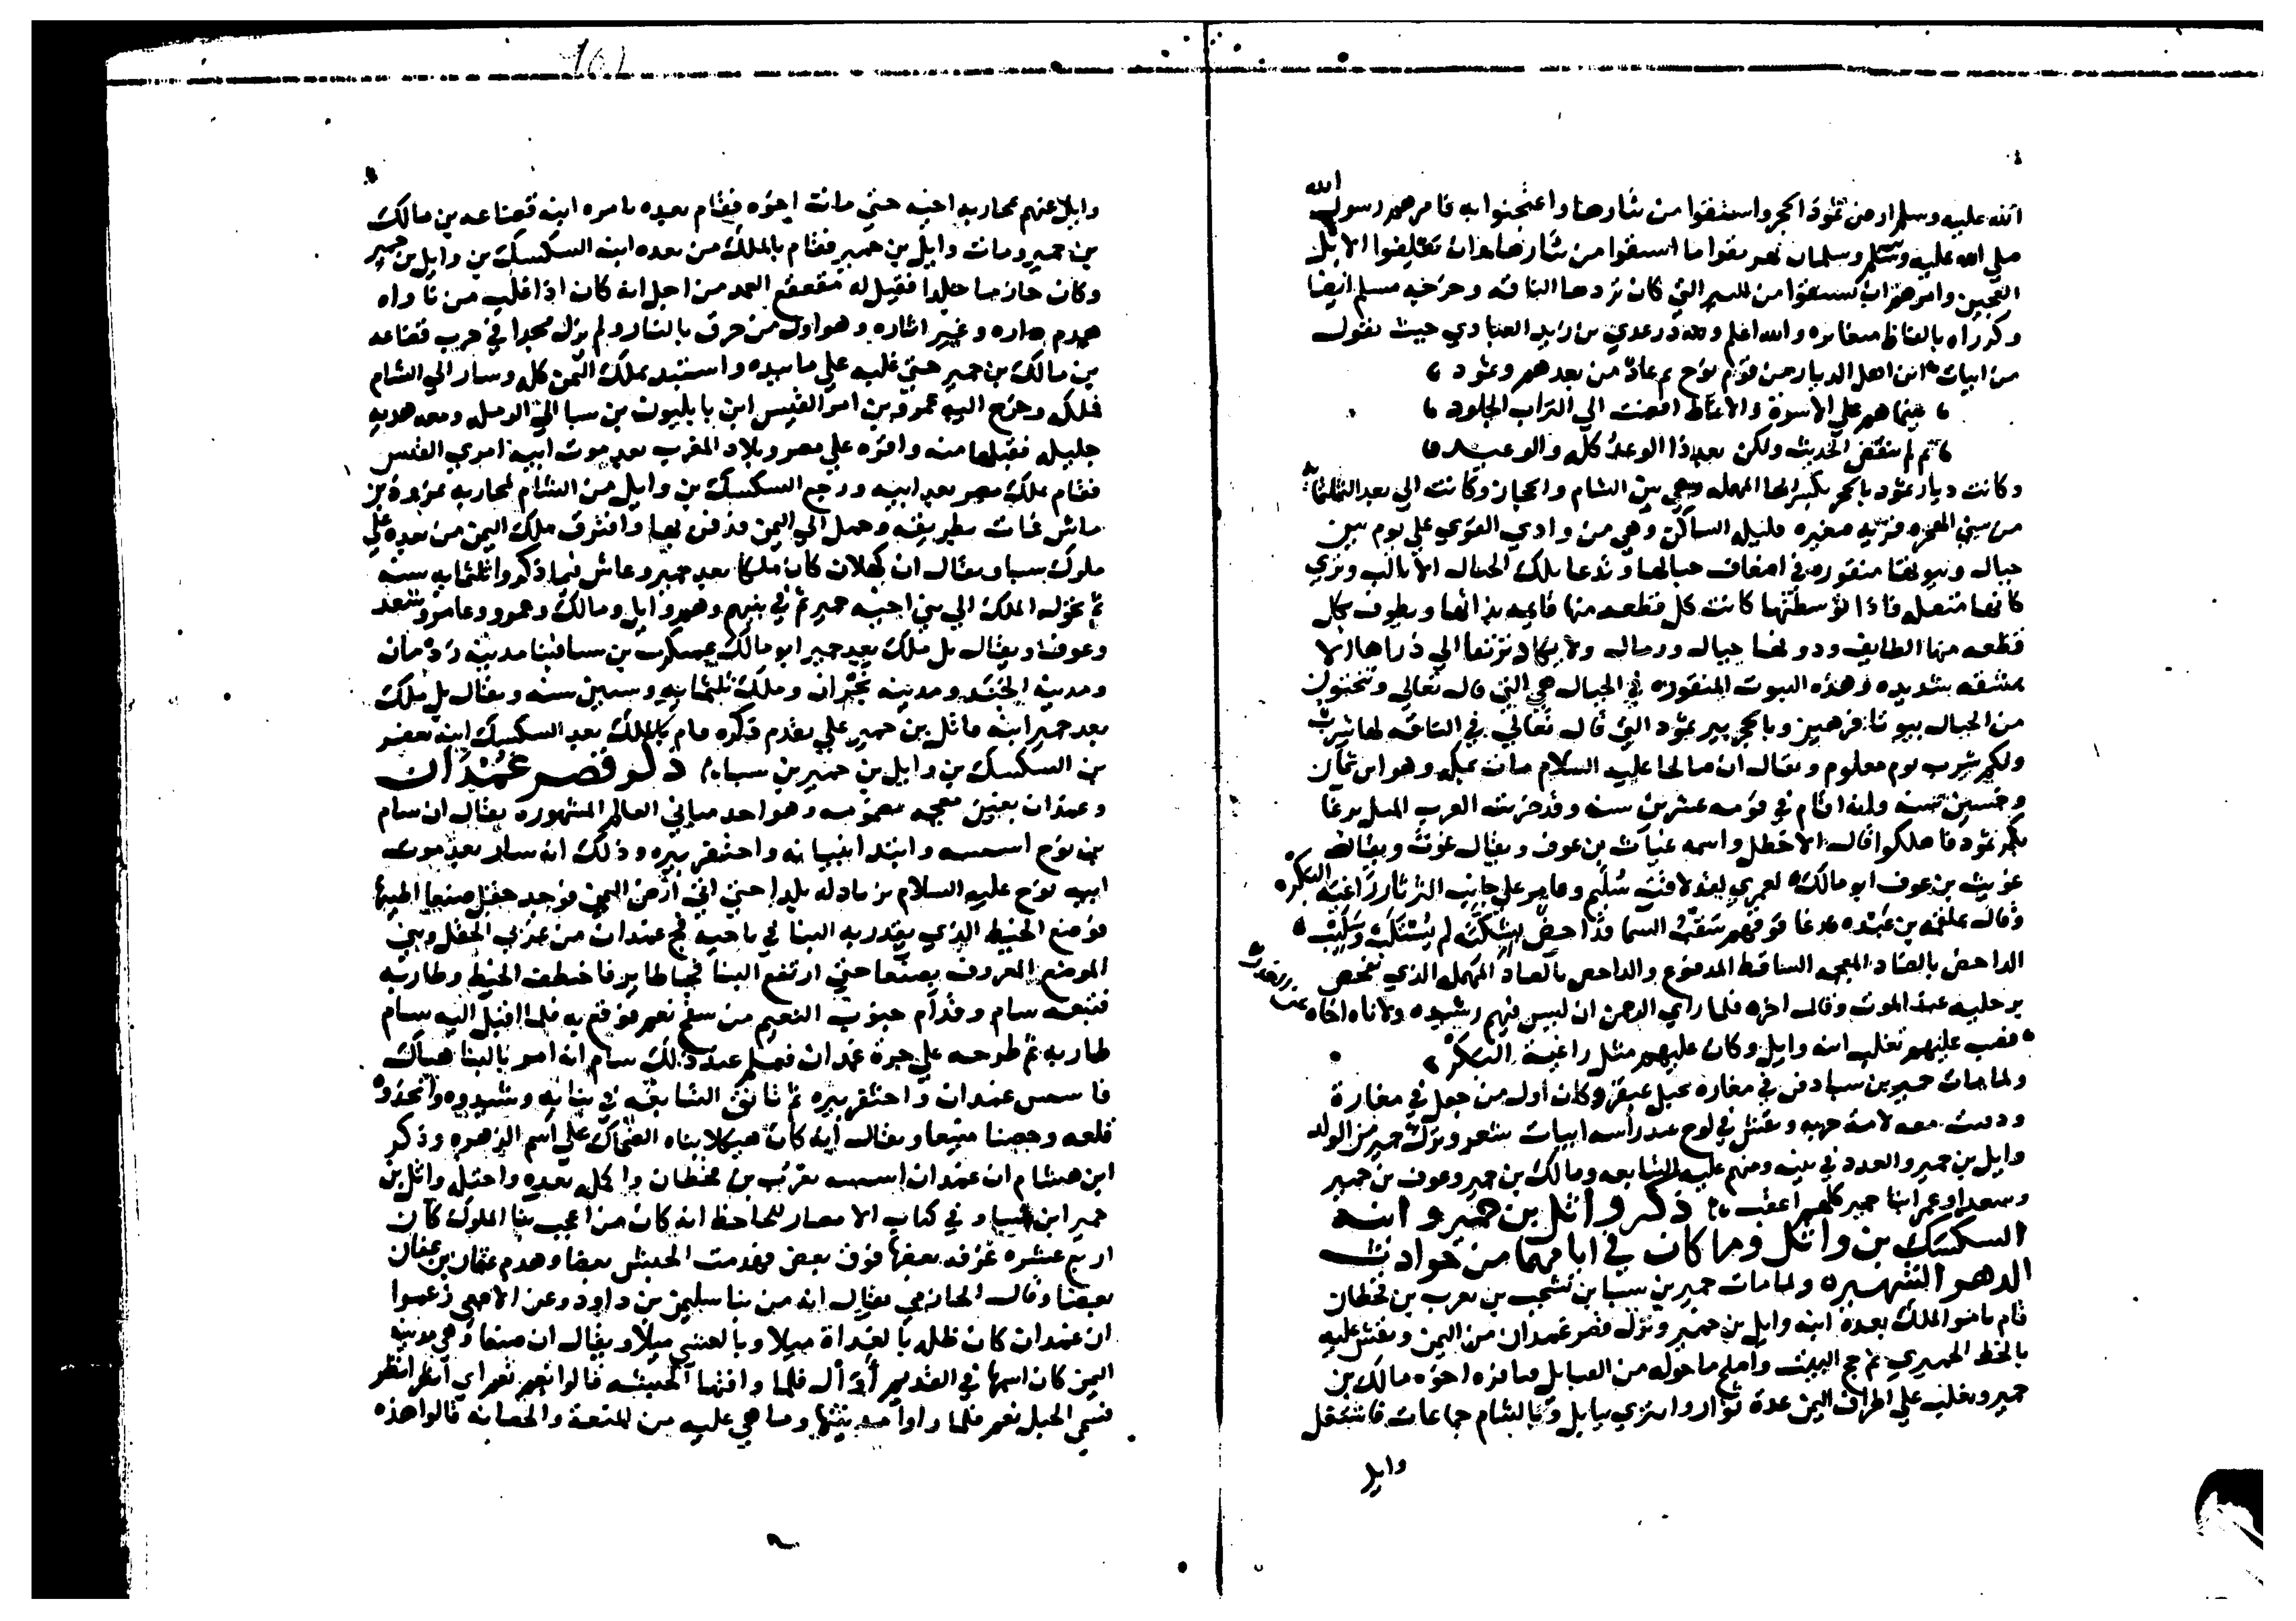 الله عليه وسلم ارض ثمود الحجر واستقوا من بئارها واعتجنوا به فامرهم رسول الله
صلي الله عليه وسلم وسلمان يهريقوا ما استقوا من بئارها وان يعلفوا الابل
العجين وامرهم ان يستقوا من البير التي كان تردها الناقه وخرجه مسلم ايضا
وكرراه بالفاظ متغايره والله اعلم ولله در عدي بن زيد العبادي حيث يقول
من ابيات اين اهل الديار من قوم نوح ثم عاد من بعدهم وثمود
بينما هم علي الاسرة والانماط افضت الي التراب الجلود
ثم لم ينقض الحديث ولكن بعد ذا الوعد كله والوعيد
وكانت ديار ثمود بالحجر بكسر الحا المهمله وهي بين الشام والحجاز وكانت الي بعد الثلثمايه
من سني الهجره قريه صغيره قليله الساكن وهي من وادي القري علي يوم بين
جبال وبيوتها منقوره في اضعاف جبالها وتدعا تلك الجبال الاثالب وتري
كانها متصله فاذا توسطتها كانت كل قطعه منها قايمه بذاتها ويطوف بكل
قطعه منها الطايف ودونها جبال ورمال ولا يكاد يرتقا الي ذراها الا
بمشقه شديده وهذه البيوت المنقوره في الجبال هي التي قال تعالي وتنحتون
من الجبال بيوتا فرهين وبالحجر بير ثمود التي قال تعالي في الناقه لها شرب
ولكم شرب يوم معلوم ويقال ان صالحا عليه السلام مات بمكه وهو ابن ثمان
وخمسين سنه وانه اقام في قومه عشرين سنه وقد ضربت العرب المثل برغا
بكر ثمود فاهلكوا قال الاخطل واسمه غياث بن عوف ويقال غوث ويقال
غويث بن عوف ابو مالك لعمري لقد لاقت سليم وعامر علي جانب الثرثار راغية البكر
وقال علقمه بن عبده رغا فوقهم سقب السما فداحض بشكته لم يستلب وسليب
الداحض بالضاد المعجمه الساقط المدفوع والداحص بالصاد المهمله الذي يفحص
برجليه عند الموت وقال اخره فلما راي الرحمن ان ليس فيهم رشيد ولا ناه اخاه عن الغدر
فصب عليهم تغلب ابنه وايل وكان عليهم مثل راغية البكر
ولما مات حمير بن سبا دفن في مغاره بجبل عيقر وكان اول من جعل في مغارة
ودفنت معه لامة حربه ونقش في لوح عند رأسه ابيات شعر وترك حمير من الولد
وايل بن حمير والعدد في بنيه ومنهم عليه التبابعه ومالك بن حمير وعوف بن حمير
وسعدا وعمرا بنا حمير كلهم اعقب ذكر واثل بن حمير وابنه
السكسك بن واثل وما كان في ايامهما من حوادث
الدهر الشهيره ولما مات حمير بن سبا بن يشجب بن يعرب بن قحطان
قام بامر الملك بعده ابنه وايل بن حمير ونزل قصر غمدان من اليمن ونقش عليه
بالخط الحميري ثم حج البيت واصلح ما حوله من القبايل فنافره اخوه مالك بن
حمير وتغلب علي اطراف اليمن عدة ثوار وانتزي ببابل وبالشام جماعات فاشتغل
وايل
وايل عنهم بمحاربه اخيه حتي مات اخوه فقام بعده بامره ابنه قضاعه بن مالك
بن حمير ومات وايل بن حمير فقام بالملك من بعده ابنه السكسك بن وايل بن حمير
وكان حازما جلدا فقيل له مقعقع العمد من اجل انه كان اذا غلب من ناواه
هدم داره وغير اثاره وهو اول من حرق بالنار ولم يزل مجدا في حرب قضاعه
بن مالك بن حمير حتي غلبه علي ما بيده واستبد بملك اليمن كله وسار الي الشام
فملك وخرج اليه عمرو بن امرو القيس ابن بابليون بن سبا الي الرمل ومعه هديه
جليله فقبلها منه واقره علي مصر وبلاد المغرب بعد موت ابيه امري القيس
فقام بملك مصر بعد ابيه ورجع السكسك بن وايل من الشام لمحاربه
فمات بطريقه وحمل الي اليمن فدفن بها وافترق ملك اليمن من بعده علي
ملوك سبا ويقال ان كهلان كان ملكا بعد حمير وعاش فيما ذكروا ثلثمايه سنه
ثم تحول الملك الي بني اخيه حمير ثم في بنيهم وهم وايل ومالك وعمرو وعامر وسعد
وعوف ويقال بل ملك بعد حمير ابو مالك عمسكرب بن سبا فبنا مدينه ردمان
ومدينه الجند ومدينه نجران وملك ثلثمايه وسبعين سنه ويقال بل ملك
بعد حمير ابنه واثل بن حمير علي تقدم ذكره قام بالملك بعد السكسك ابنه يعفر
بن السكسك بن وايل بن حمير بن سبا ذكر قصر غمدان
وغمدان بغين معجمه مضمومه وهو احد مباني العالم المشهوره يقال ان سام
بن نوح اسسه وابتدا بنيانه واحتفر بيره وذلك انه سار بعد موت
ابيه نوح عليه السلام يرتاد له بلدا حتي اتي ارض اليمن فوجد حقل صنعا اطيبها
فوضع الخيط الذي يقدر به البنا في ناحيه فج غمدان من غربي الحقل وبني
الموضع المعروف بصنعا حتي ارتفع البنا فجا طاير فاختطف الخيط وطار به
فتبعه سام وقدام جنوب النعيم من سفح نعم فوقع به فلما اقبل اليه سام
طار به ثم طرحه علي حرة غمدان فعلم عند ذلك سام انه امر بالبنا هناك
فاسس غمدان واحتفر بيره ثم تانق التبابعه في بنايه وشيدوه واتخذوه
قلعه وحصنا منيعا ويقال انه كان هيكلا بناه الضحاك علي اسم الزهره وذكر
ابن هشام ان غمدان اسسه يعرب بن قحطان واكمله بعده واحتله واثل بن
حمير ابن سبا وفي كتاب الامصار للجاحظ انه كان من اعجب بنا الملوك كان
اربع عشره غرفه بعضها فوق بعض فهدمت الحبش بعضا وهدم عثمان بن عفان
بعضا وقال الحازمي يقال انه من بنا سليمن بن داود وعن الاصمعي زعموا
ان غمدان كان ظله بالغداة ميلا وبالعشي ميلا ويقال ان صنعا وهي مدينه
اليمن كان اسمها في القديم أزال فلما وافتها الحبشه قالوا نعم نعم اي انظر انظر
فسمي الجبل نعم فلما راوا مدينتها وما هي عليه من المنعة والحصانه قالوا هذه